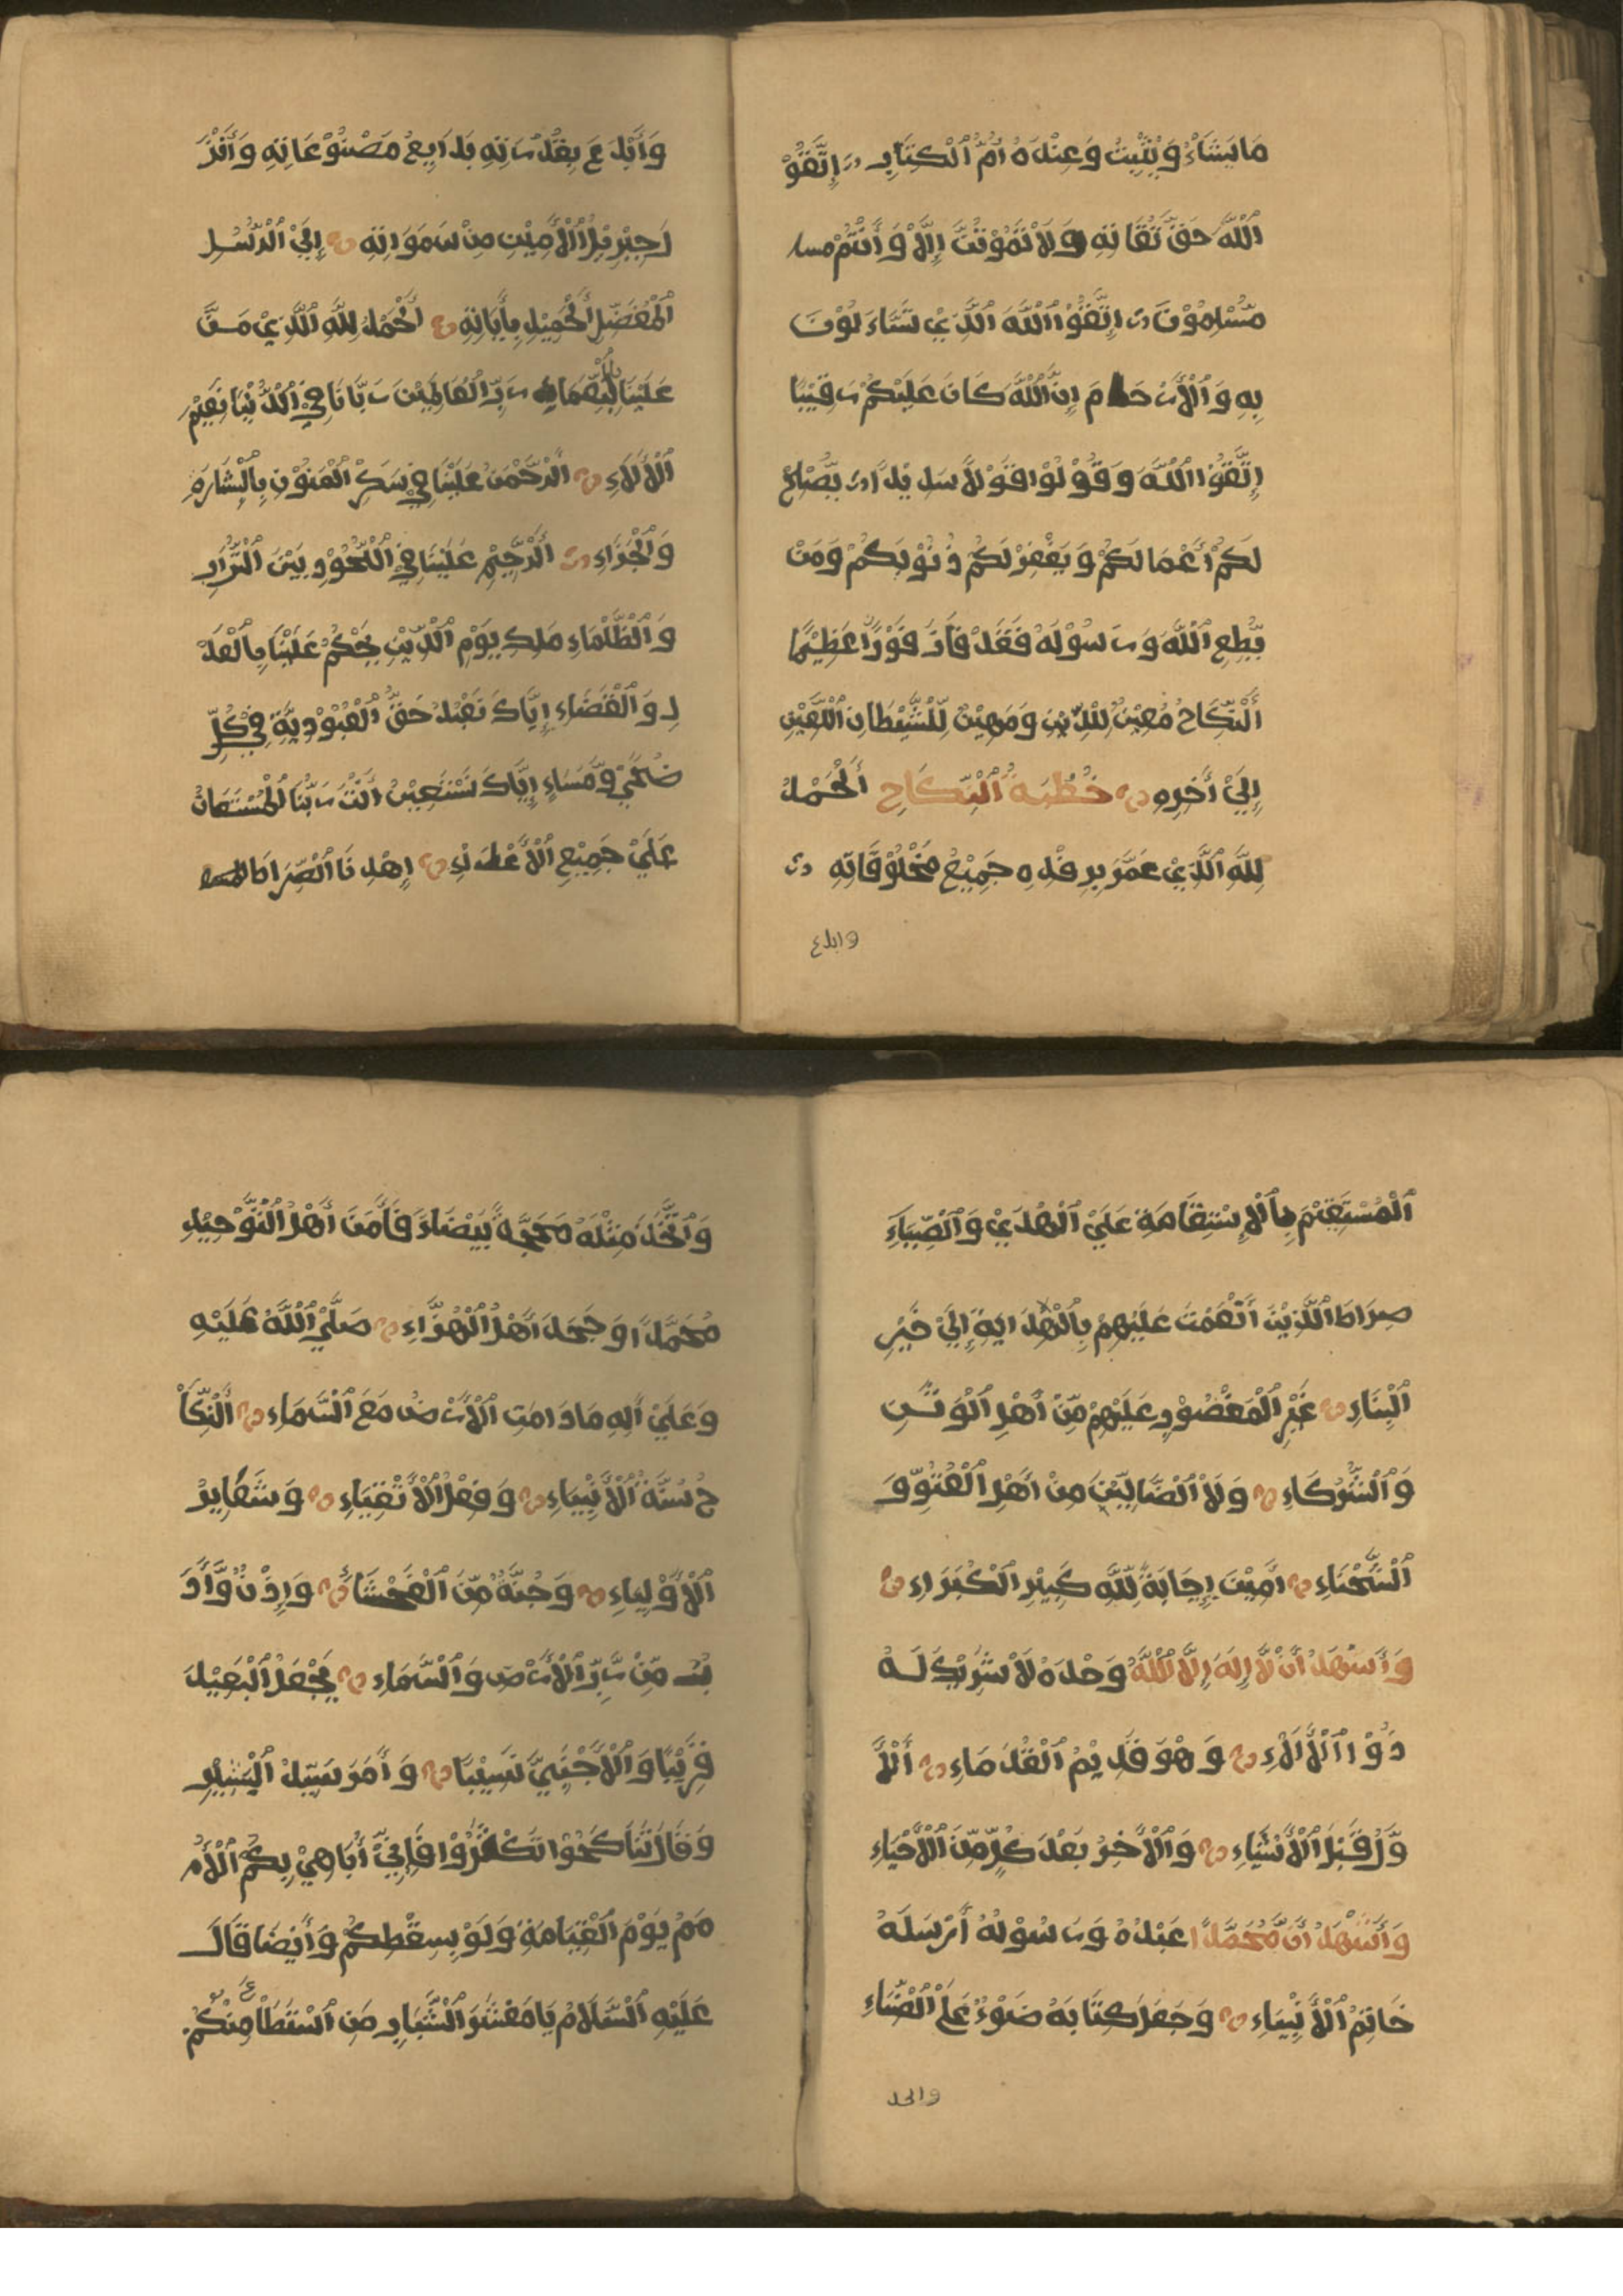 مَا يَشَاءُ وَيُثْبِتُ وَعِنْدَهُ أُمُّ الْكِتَابِ إِتَّقُوْ
اللَّهَ حَقَّ تُقَاتِهِ وَلَا تَمُوْتُنَّ إِلَّا وَأَنْتُمْ مسا
مُّسْلِمُوْنَ اِتَّقُوْا اللَّهَ الَّذِيْ تَسَّاءَلُوْنَ
بِهِ وَالْأَرْحَامَ إِنَّ اللَّهَ كَانَ عَلَيْكُمْ رَقِيْبًا
إِتَّقُوْا اللَّهَ وَقُوْلُوْا قَوْلًا سَدِيْدًا يُّصْلِحْ
لَكُمْ أَعْمَالَكُمْ وَيَغْفِرْ لَكُمْ ذُنُوْبَكُمْ وَمَنْ
يُّطِعِ اللَّهَ وَرَسُوْلَهُ فَقَدْ فَازَ فَوْزًا عَظِيْمًا
أَلنِّكَاحُ مُعِيْنٌ لِلدِّيْنِ وَمُهِيْنٌ لِلشَّيْطَانِ اللَّعِيْنِ
إِلَيْ أَخِرِهِ خُطْبَةُ النِّكَاحِ أَلْحَمْدُ
لِلَّهِ الَّذِيْ عَمَّرَ بِرِفْدِهِ جَمِيْعَ مَخْلُوْقَاتِهِ
وابدع
وَأَبْدَعَ بِقُدْرَتِهِ بَدَايِعُ مَصْنُوْعَاتِهِ وَأَنْزَ
لَ جِبْرِيْلَ الْأَمِيْنِ مِنْ سَمَوَاتِهِ إِلَيْ الرُّسُلِ
الْمُفَضَّلِ الْجَمِيْلِ بِأَيَاتِهِ أَلْحَمْدُ لِلَّهِ الَّذِيْ مَنَّ
عَلَيْنَا بِالنِّعْمَاءِ رَبِّ الْعَالَمِيْنَ رَبَّانَا فِيْ الدُّنْيَا نَعِيْمِ
الْأَلَاءِ الرَّحْمَنُ عَلَيْنَا فِيْ سَكْرِ الْمَنُوْنِ بِالْبِشَارَةِ
وَالْجَزَاءِ أَلرَّحِيْمِ عَلَيْنَا فِيْ اللُّحُوْدِ بَيْنَ التُّرَابِ
وَالظُّلْمَاءِ مَلِكِ يَوْمِ الدِّيْنِ يَحْكُمُ عَلَيْنَا بِالْعَدْ
لِ وَالْقَضَاءِ إِيَّاكَ نَعْبُدُ حَقَّ الْعُبُوْدِيَّةِ فِيْ كُلِّ
ضُحَيْ وَّمَسَاءٍ إِيَّاكَ نَسْتَعِيْنُ أَنْتَ رَبُّنَا الْمُسْتَعَانُ
عَلَيْ جَمِيْعِ الْأَعْطَاءِ إِهْدِنَا الصِّرَاطَ
الْمُسْتَقِيْمَ بِالْإِسْتِقَامَةِ عَلَيْ الْهُدَيْ وَالضِّيَاءِ
صِرَاطَ الَّذِيْنَ أَنْعَمْتَ عَلَيْهِمْ بِالْهِدَايَةِ إِلَيْ خَيْرِ
الْبِنَاءِ غَيْرِ الْمَغْضُوْبِ عَلَيْهِمْ مِّنْ أَهْلِ الْوَثَنِ
وَالشُّرَكَاءِ وَلَا الضَّالِّيْنَ مِنْ أَهْلِ الْعُتُوِّ وَ
الشَّحْنَاءِ اٰمِيْنَ إِجَابَةً لِلَّهِ كَبِيْرِ الْكُبَرَاءِ
وَأَشْهَدُ أَنْ لَّا إِلَهَ إِلَّا اللَّهُ وَحْدَهُ لَا شَرِيْكَ لَهُ
ذُوْ الْأَلَاءِ وَهُوَ قَدِيْمُ الْقُدَمَاءِ أَلْأَ
وَّلُ قَبْلَ الْأَشْيَاءِ وَالْأَخِرُ بَعْدَ كُلٍّ مِّنَ الْأَحْيَاءِ
وَأَشْهَدُ أَنَّ مُحَمَّدًا عَبْدُهُ وَرَسُوْلُهُ أَرْسَلَهُ
خَاتِمُ الْأَنْبِيَاءِ وَجَعَلَ كِتَابَهُ ضَوْءُ عَلَيْ الضِّيَاءِ
واتخد
وَاتَّخَذَ مِثْلَهُ مَحَجَّةً بَيْضَاءَ فَأَمَنَ أَهْلُ التَّوْحِيْدِ
مُحَمَّدًا وَجَحَدَ أَهْلُ الْهَوَّاءِ صَلَّيْ اللَّهُ عَلَيْهِ
وَعَلَيْ أَلِهِ مَادَامَتِ الْأَرْضُ مَعَ السَّمَاءِ أَلنِّكَا
حُ سُنَّةُ الْأَنْبِيَاءِ وَفِعْلُ الْأَتْقِيَاءِ وَشَعَايِرُ
الْأَوْلِيَاءِ وَجُنَّةٌ مِّنَ الْفَحْشَاءِ وَإِذْنٌ وَّأَدَ
بٌ مِّنْ رَّبِّ الْأَرْضِ وَالسَّمَاءِ يَجْعَلُ الْبَعِيْدَ
قَرِيْبًا وَالْأَجْنَبِيَّ نَسِيْبًا وَأَمَرَ سَيِّدُ الْبَشِيْرِ
وَقَالَ تَنَاكَحُوْا تَكْثَرُوْا فَإِنِّيْ أُبَاهِيْ بِكُمُ الْأُ
مَمُ يَوْمَ الْقِيَامَةِ وَلَوْ بِسِقْطِكُمْ وَأَيْضًا قَالَ
عَلَيْهِ السَّلَامُ يَا مَعْشَرَ الشَّبَابِ مَنِ اسْتَطَاعَ مِنْكُمْ